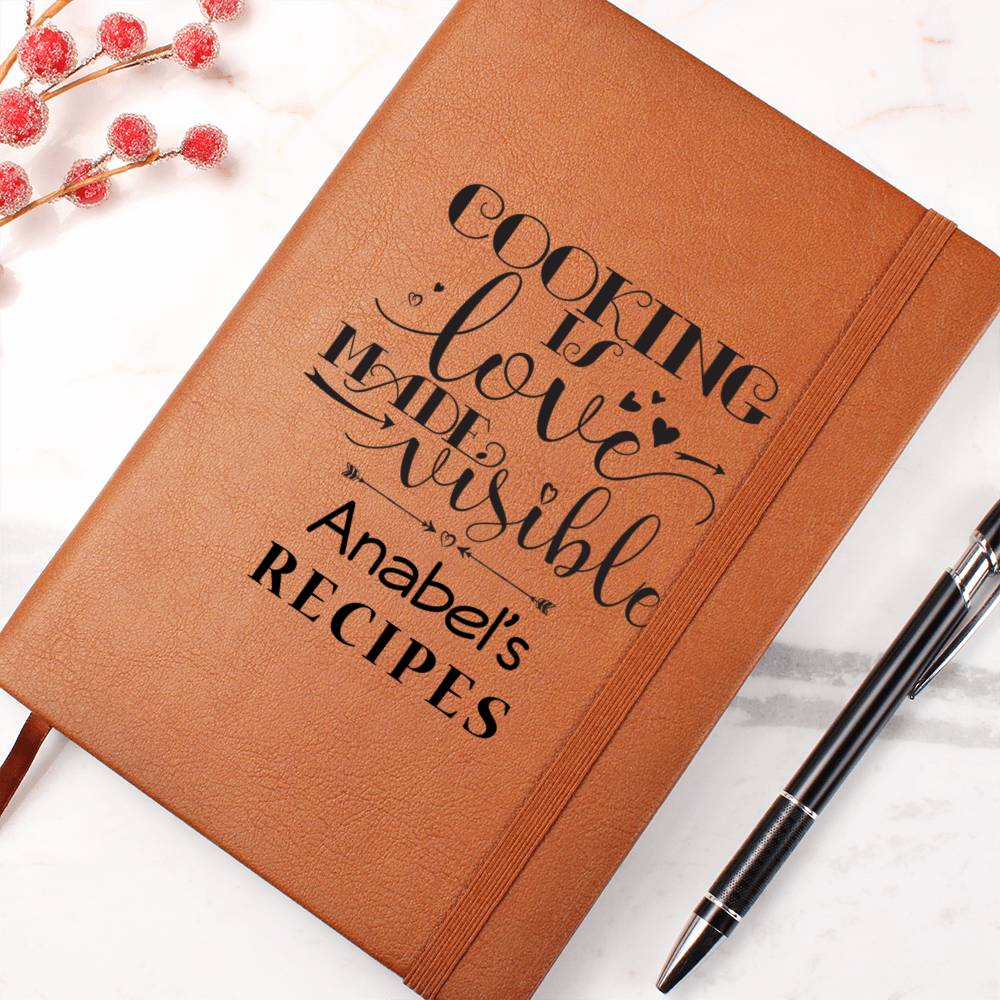 COOKING
IS
love
MADE
visible
Anabel's
RECIPES